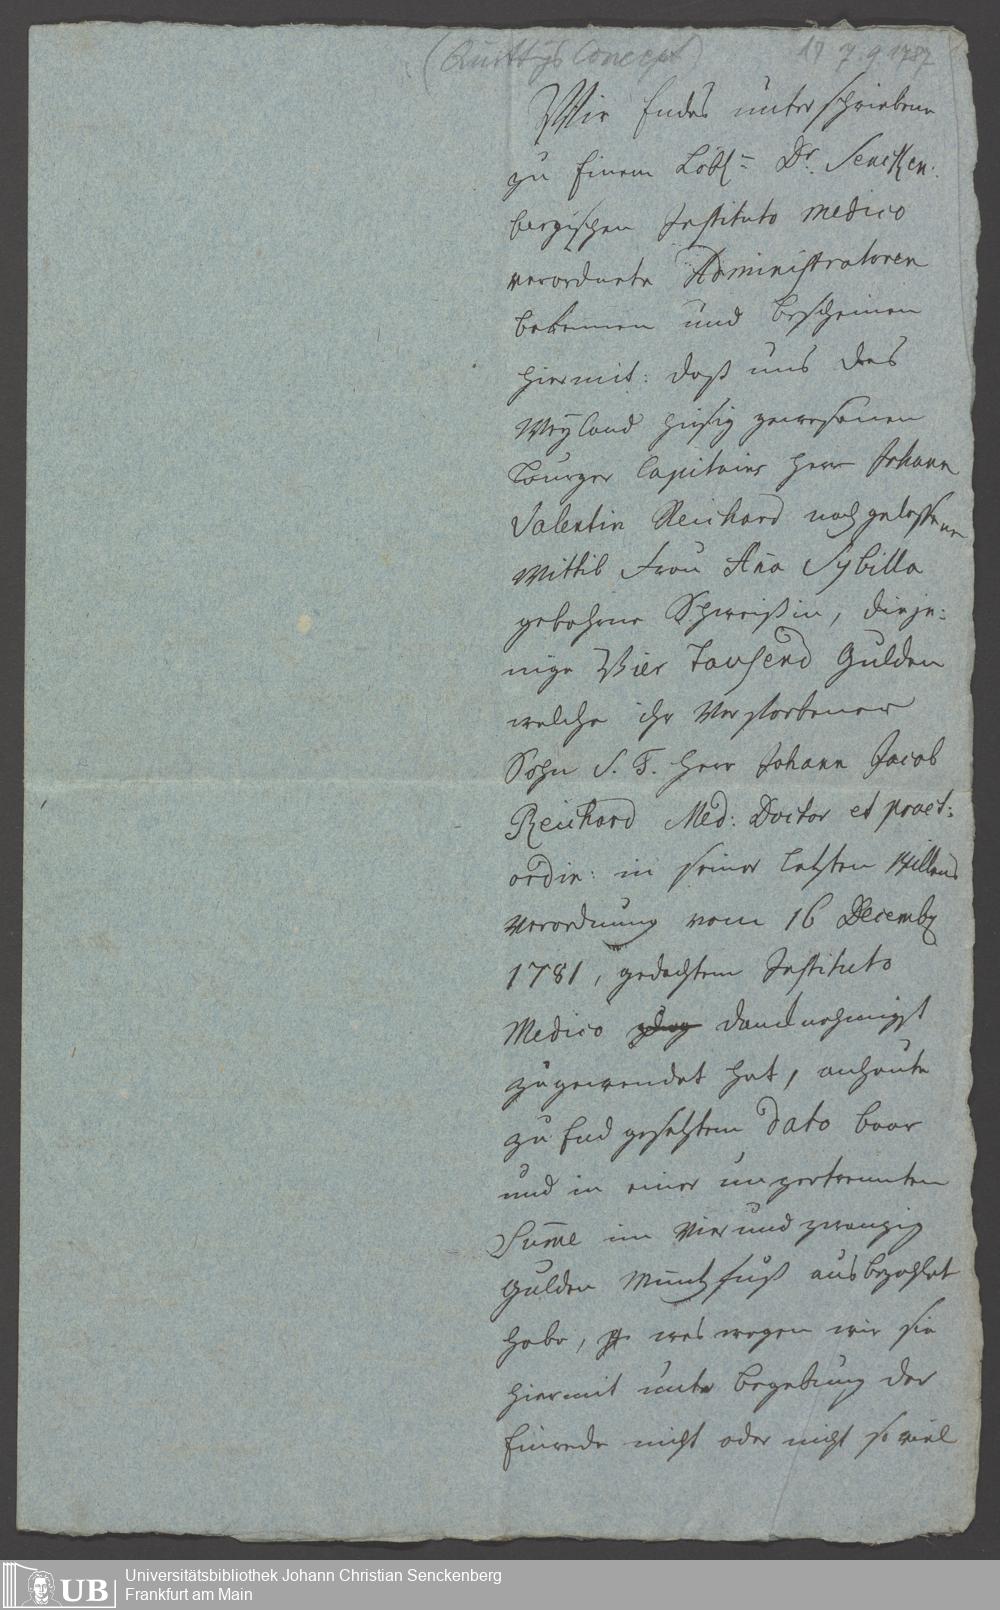 (Quittgs Concept) 17 7. 9. 1787
Wir Endes unterschriebene
zu Einem Löbl= Dr. Sencken-
bergischen Instituto medico
verordnete Administratoren
bekennen und bescheinen
hiermit: daß uns des
Weyland hiesig gewesenen
Burger Capitains Herr Johann
Valentin Reichard nachgelassene
Wittib Frau Aña Sybilla
gebohrne Schweißin, dieje-
nige Vier Tausend Gulden
welche ihr Verstorbener
Sohn S. T. Herr Johann Jacob
Reichard Med: Doctor et pract:
ordin: in seiner letzten Willens
Verordnung vom 16 Decembr
1781, gedachtem Instituto
Medico dancknehmigst
zugewendet hat, anheute
zu End gesetztem Dato baar
und in einer unzertrennten
Sum̄e im Vier und zwanzig
Gulden Müntzfuß ausbezahlt
habe, weswegen wir sie
hiermit unter Begebung der
Einrede nicht oder nicht so viel
UB
Universitätsbibliothek Johann Christian Senckenberg
Frankfurt am Main